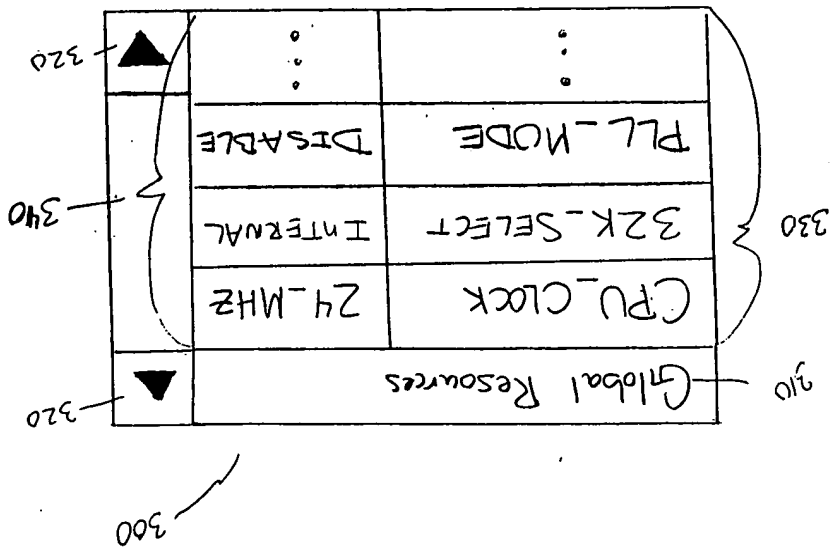 300
310 Global Resources 320
CPU_CLOCK 24_MHZ
330 32K_SELECT INTERNAL 340
PLL_MODE DISABLE
320